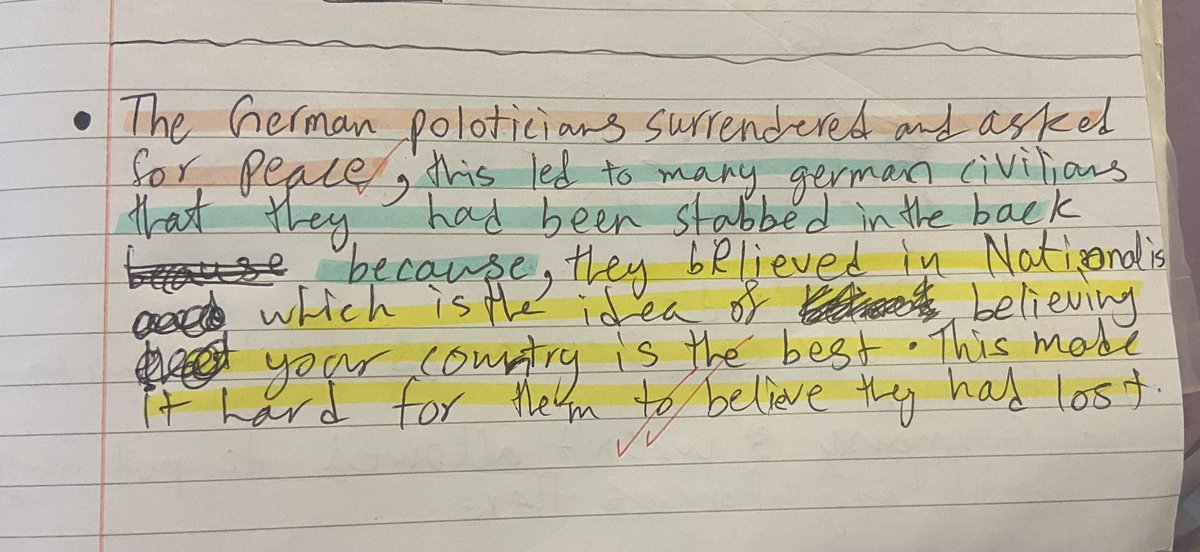 • The German poloticians surrendered and asked
for peace, this led to many german civilians
that they had been stabbed in the back
because because, they believed in Nationalis
which is the idea of believing
your country is the best. This made
it hard for them to believe they had lost.